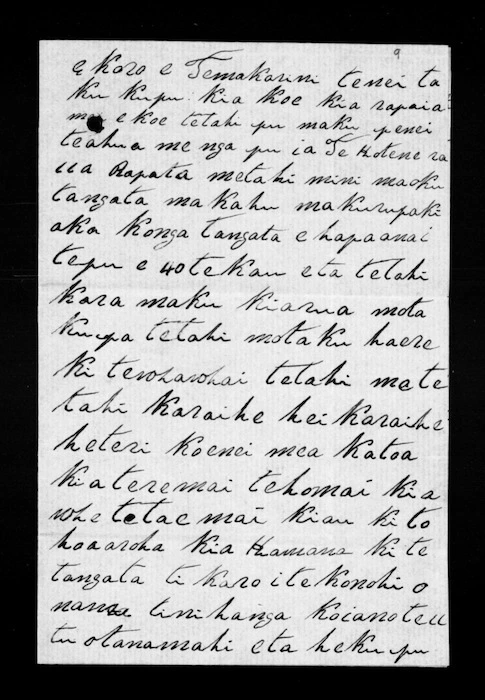 9
e Karo e Temakarini tenei ta
ku kupu. kia koe kia rapaia
mai e koe tetahi pu maku penei
teahua me nga pu ia Te Hotene ra
ua Rapata metahi mini maoku
tangata ma kahu makurupaki
aka konga tangata e hapaanai
tepu e 40 te kau eta tetahi
kara maku kiarua mota
kupa tetahi motaku haere
ki tewhawhai tetahi mete
tahi karaihe hei karaihe
heteri koenei mea katoa
kia teremai tehomai kia
whe tetae mai kiau ki to
hoaaroha kia Hamana ki te
tangata ti karo i te konohi o
nana tinihanga koianoteu
tu otanamahi eta hekupu